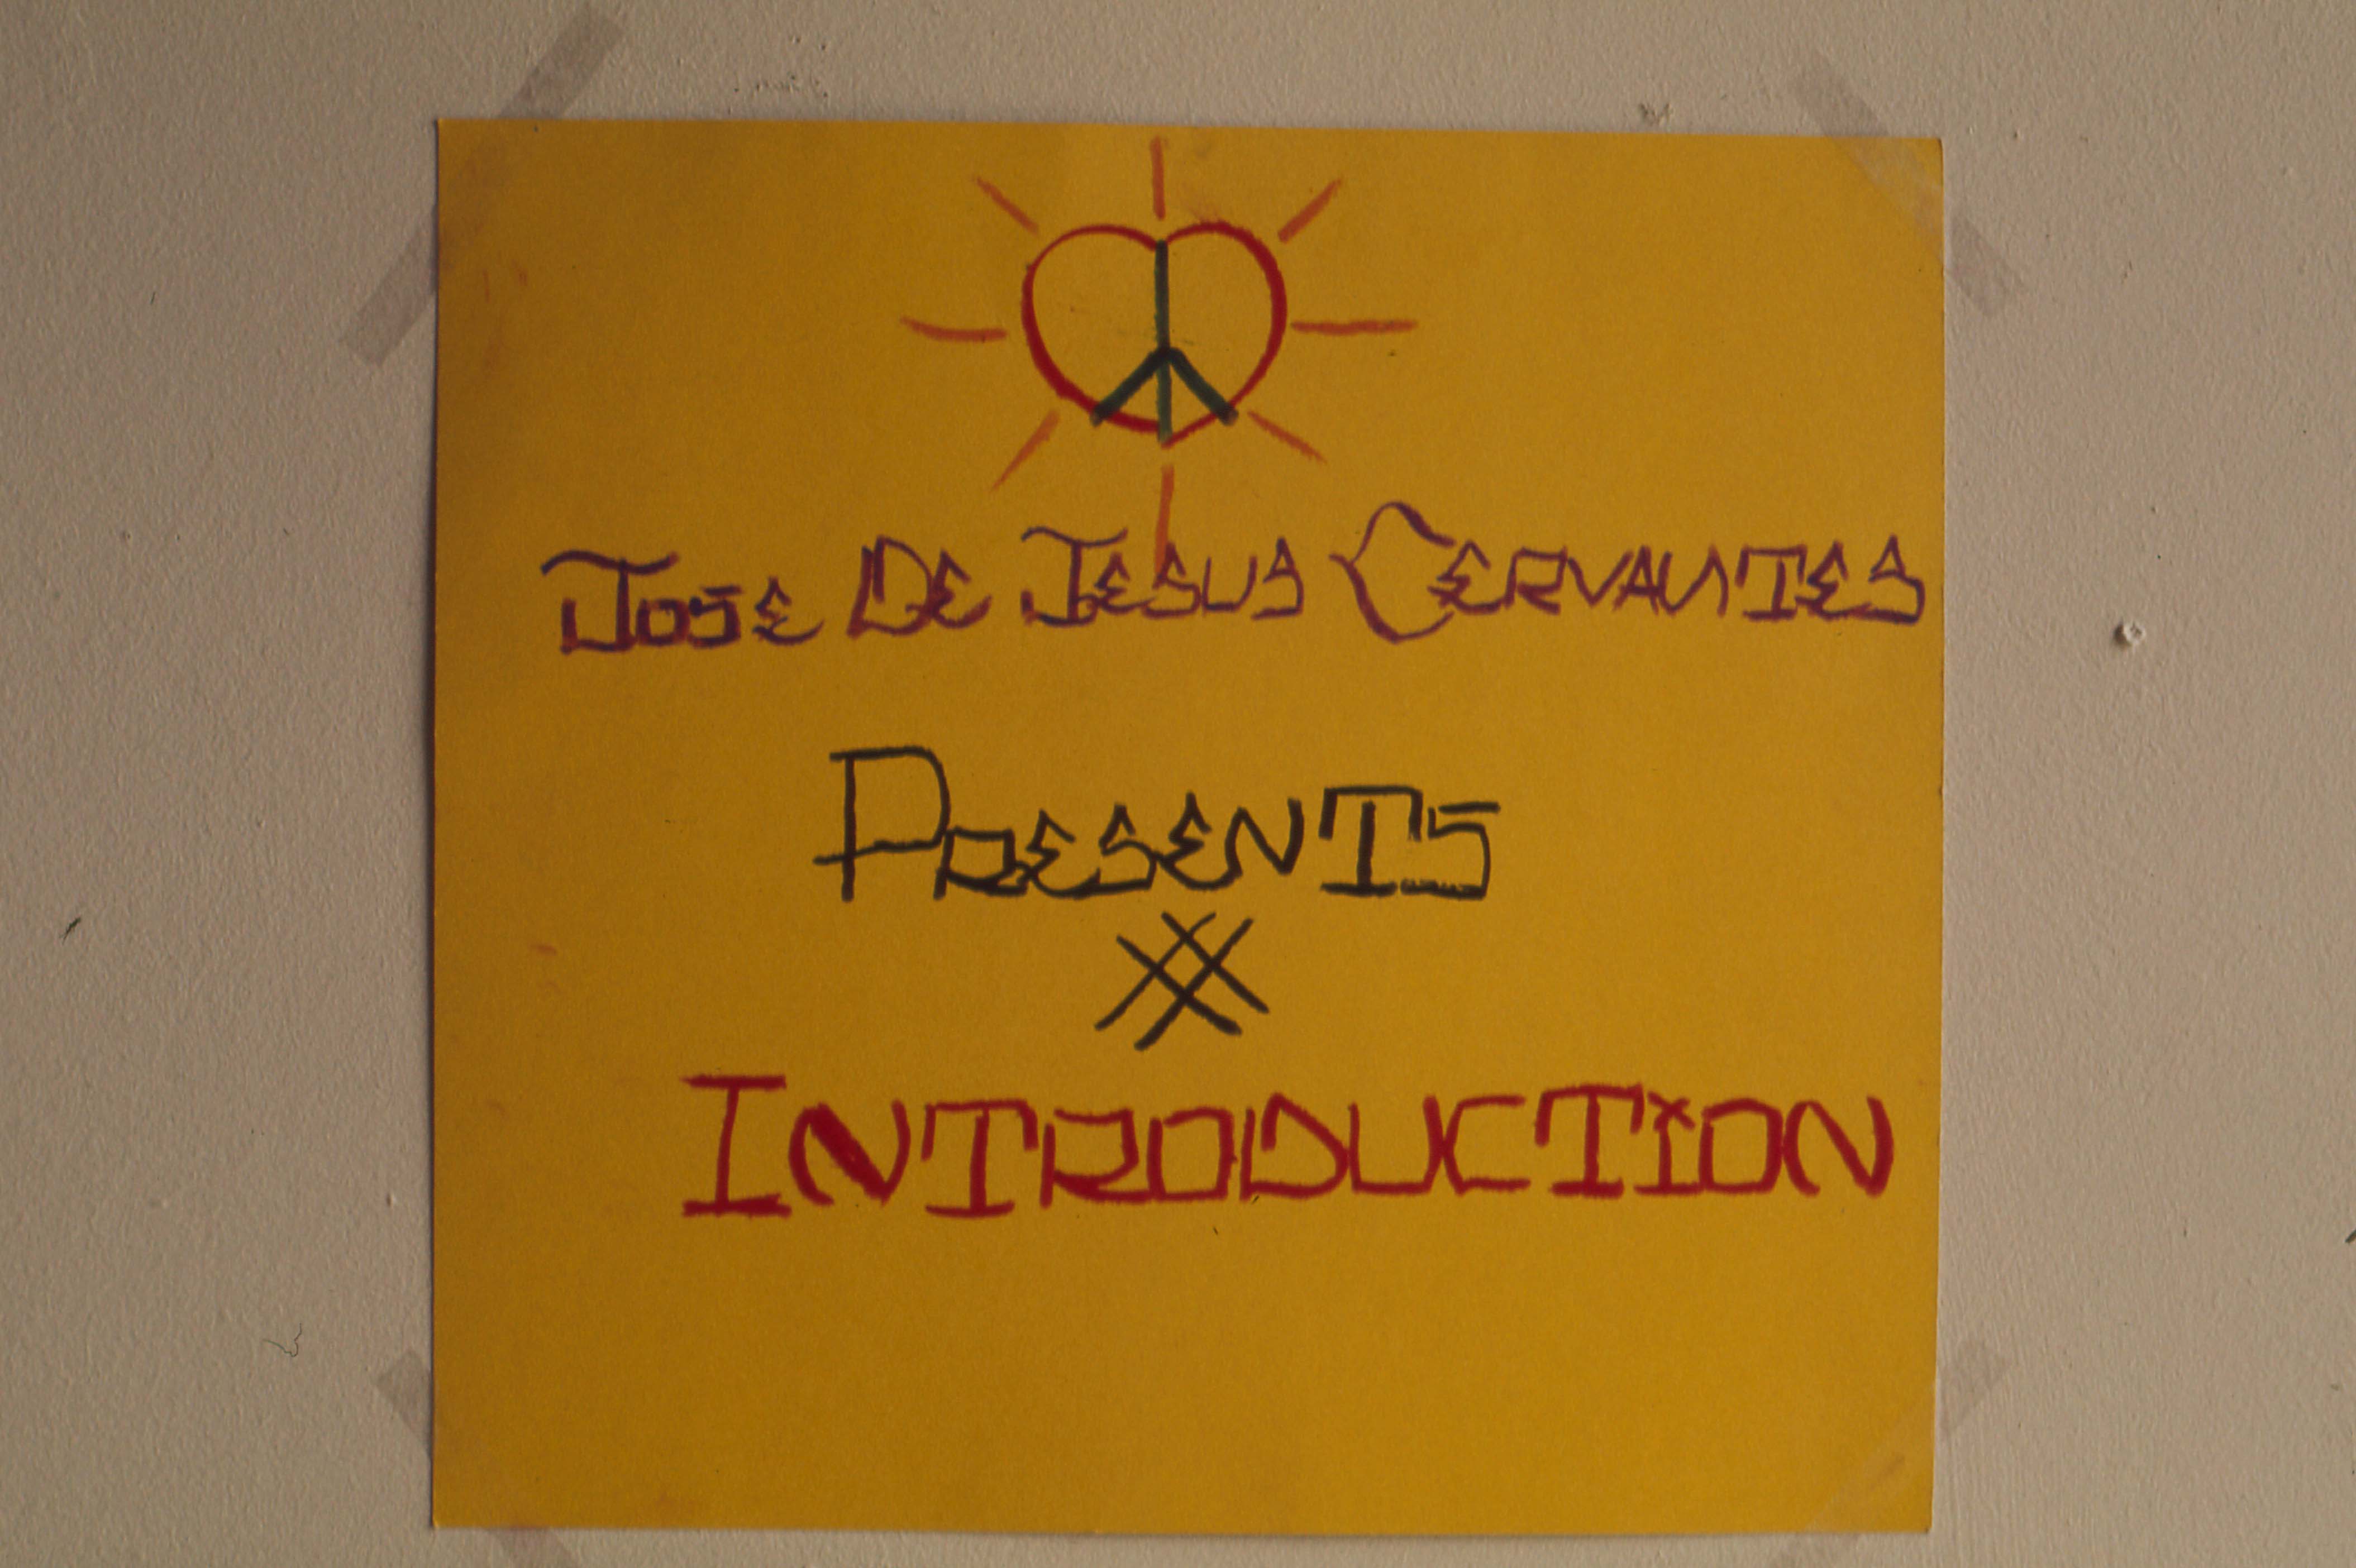 Jose De Jesus Cervantes
Presents
Introduction